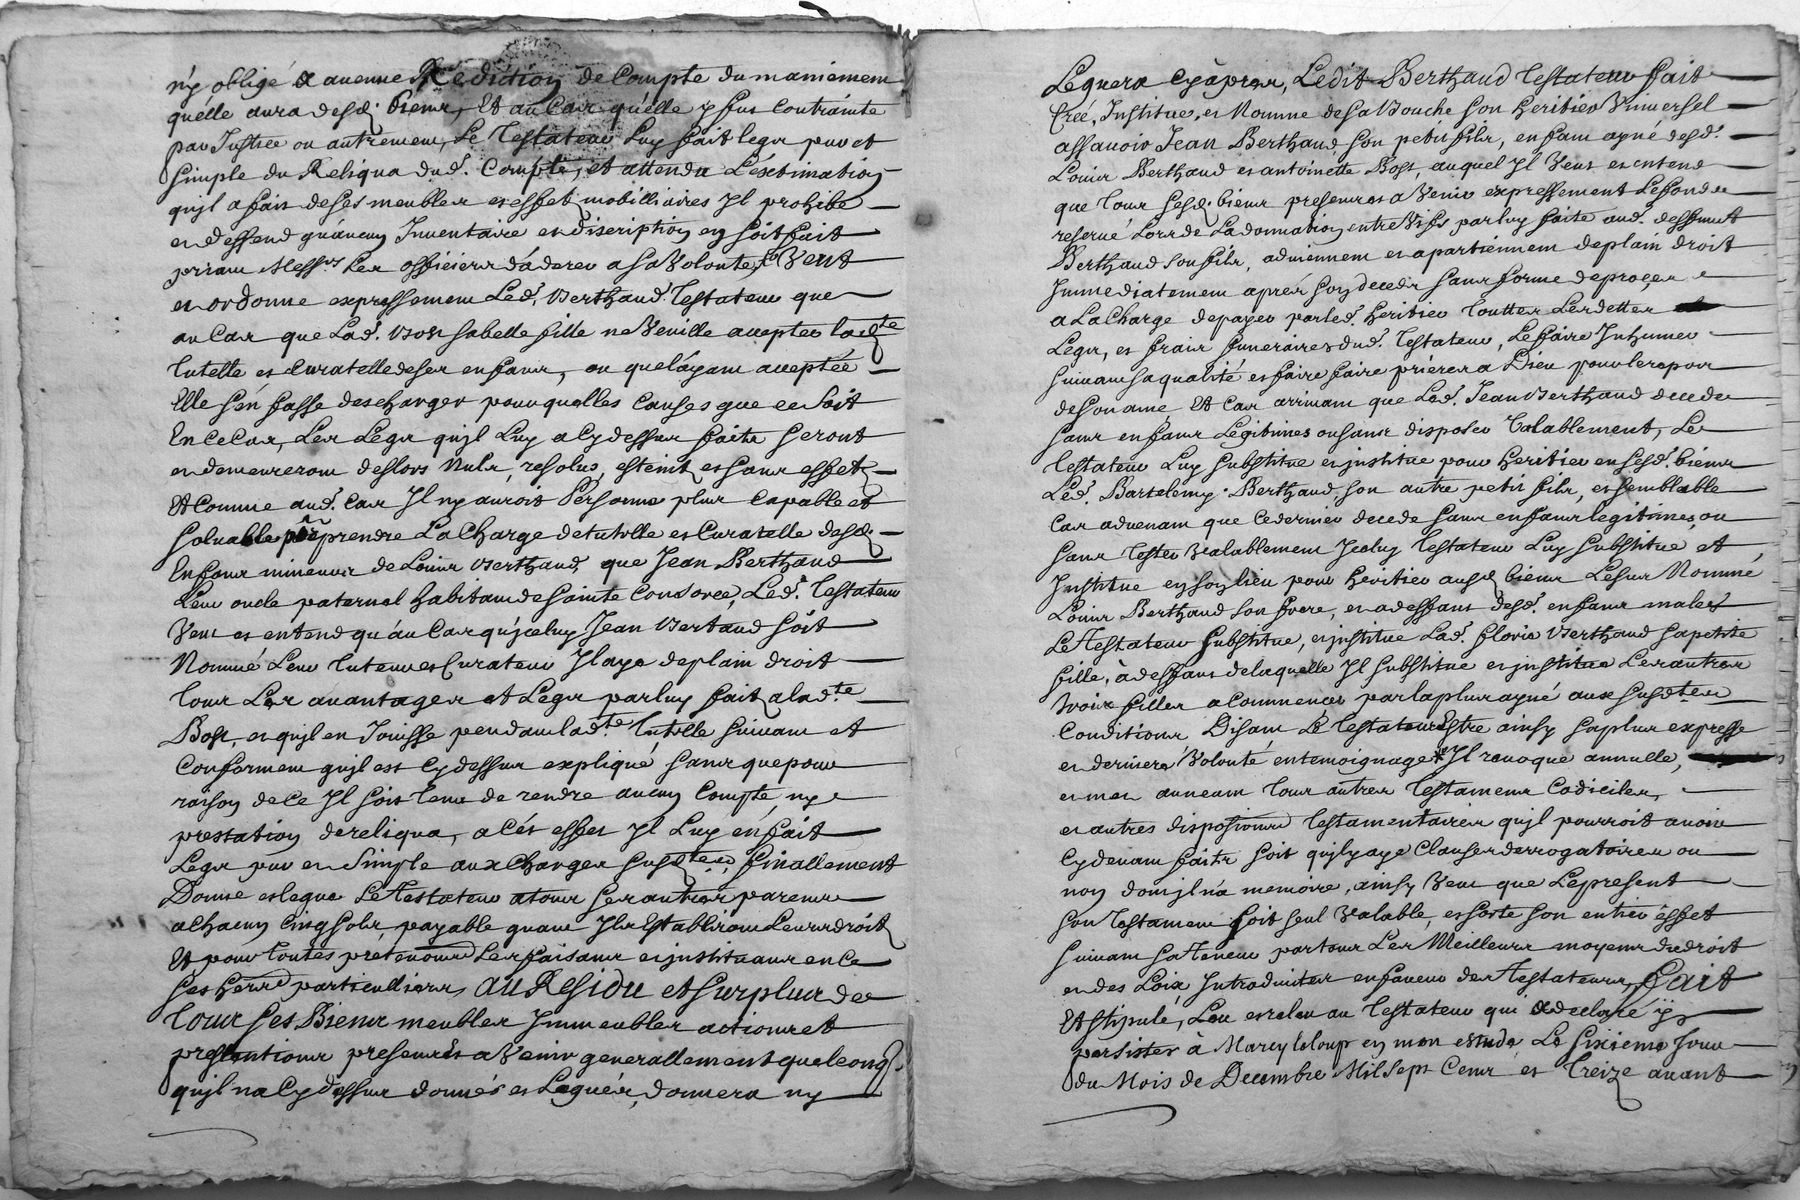 ny obligé a aucune Rediction de Compte du maniement
qu'elle aura desd. biens, Et au Cas qu'elle y fut Contrainte
par Justice ou autrement, Le Testateur Luy fait legs pur et
Simple du Reliqua dud. Compte, et attendu L'estimation
qu'jl a fait de ses meubles et effets mobilliaires Jl prohibe
et deffend qu'aucun Inventaire et discription en soit fait
priant Messrs Les officiers d'aderer a sa Volonté, Veut
et ordonne expressement Led. Berthaud Testateur que
au Cas que Lad. Bost sa belle fille ne Veuille accepter lad.te
tutelle et Curatelle de ses enfans, ou que l'ayant acceptée
Elle s'en fasse descharger pour quelles Causes que ce Soit
En ce Cas, Les Legs qu'jl Luy a Cydessus faits Seront
et demeureront deslors Nuls, resolus, esteint et sans effet
Et Comme aud. Cas Jl ny auroit Personne plus Capable et
Solvable pour prendre La Charge de tutelle et Curatelle desd.
Enfans mineurs de Louis Berthaud, que Jean Berthaud
Leur oncle paternel habitant de Sainte Consorce, Led. Testateur
Veut et entend qu'au Cas qu'jceluy Jean Bertaud soit
Nommé Leur tuteur et Curateur Jl aye de plain droit
tous Les avantages et Legs par luy fait a lad.te
Bost, et qu'jl en Jouisse pendant lad.te tutelle suivant et
Conformement qu'jl est Cydessus expliqué sans que pour
raison de ce Jl soit tenu de rendre aucun Compte, ny
prestation de reliqua, a cét effet Jl Luy en fait
Legs pur et Simple aux Charges susd.tes, finallement
Donne et legue Le Testateur a tous ses autres parens
a Chacun Cinq sols, payable quant Jls Establiront Leurs droits
Et pour toutes pretentions Les faisant et jnstituant en ce
ses Herit. particulliers, au Residu et surplus de
tous ses Biens meubles Immeubles actions et
pretentions presents et a Venir generallement quelconq.
qu'jl n'a Cydessus donnés et Legués, donnera ny
Leguera Cy apres, Ledit Berthaud Testateur fait
Créé, Institue, et Nomme de sa Bouche son Heritier Universel
assavoir Jean Berthaud son petit fils, enfant ayné desd.
Louis Berthaud et antoinette Bost, auquel Jl Veut et entend
que tous sesd. biens presents et a Venir expressement Le fonds
reservé Lors de La donnation entre Vifs par luy faite aud. deffunt
Berthaud son fils, adviennent et apartiennent de plain droit
Immediatement aprés son deceds sans forme de procez
a La Charge de payer par led. Heritier touttes Les dettes
Legs, et frais funeraires dud. Testateur, Le faire Inhumer
suivant sa qualité et faire faire prieres a Dieu pour le repos
de son ame Et Cas arrivant que Led. Jean Berthaud decede
sans enfans Legitimes ou sans disposer Valablement, Le
Testateur Luy Substitue et jnstitue pour Heritier en sesd. biens
Led. Bartelemy Berthaud, son autre petit fils, et semblable
Cas advenant que Ce dernier decede sans enfans legitimes, ou
sans tester Valablement Jceluy Testateur Luy substitue et
Institue en son lieu pour Heritier ausd. biens Le sus Nommé
Louis Berthaud son frere, et a deffaut desd. enfans males
Le Testateur substitue, et jnstitue Lad. floris Berthaud sa petite
fille, à deffaut de laquelle Jl substitue et jnstitue Les autres
trois filles a Commencer par la plus ayné aux susd.tes
Conditions Disant Le Testateur Estre ainsy sa plus expresse
et derniere Volonté en temoignage Jl revoque annulle,
et met au neant tous autres Testaments Codiciles,
et autres dispositions Testamentaires qu'jl pourroit avoir
Cydevant faits soit qu'jl y aye Clauses derrogatoires ou
non dont jl n'a memoire, ainsy Veut que Le present
son Testament soit seul Valable, et sorte son entier éffet
suivant sa teneur par tous Les Meilleurs moyens du droit
et des Loix Introduites en faveur des Testateurs, fait
Et stipulé, Leu et releu au Testateur qui a declaré y
persister à Marcy le loup en mon estude, Le sixieme Jour
du Mois de Decembre Mil Sept Cens et Treize avant